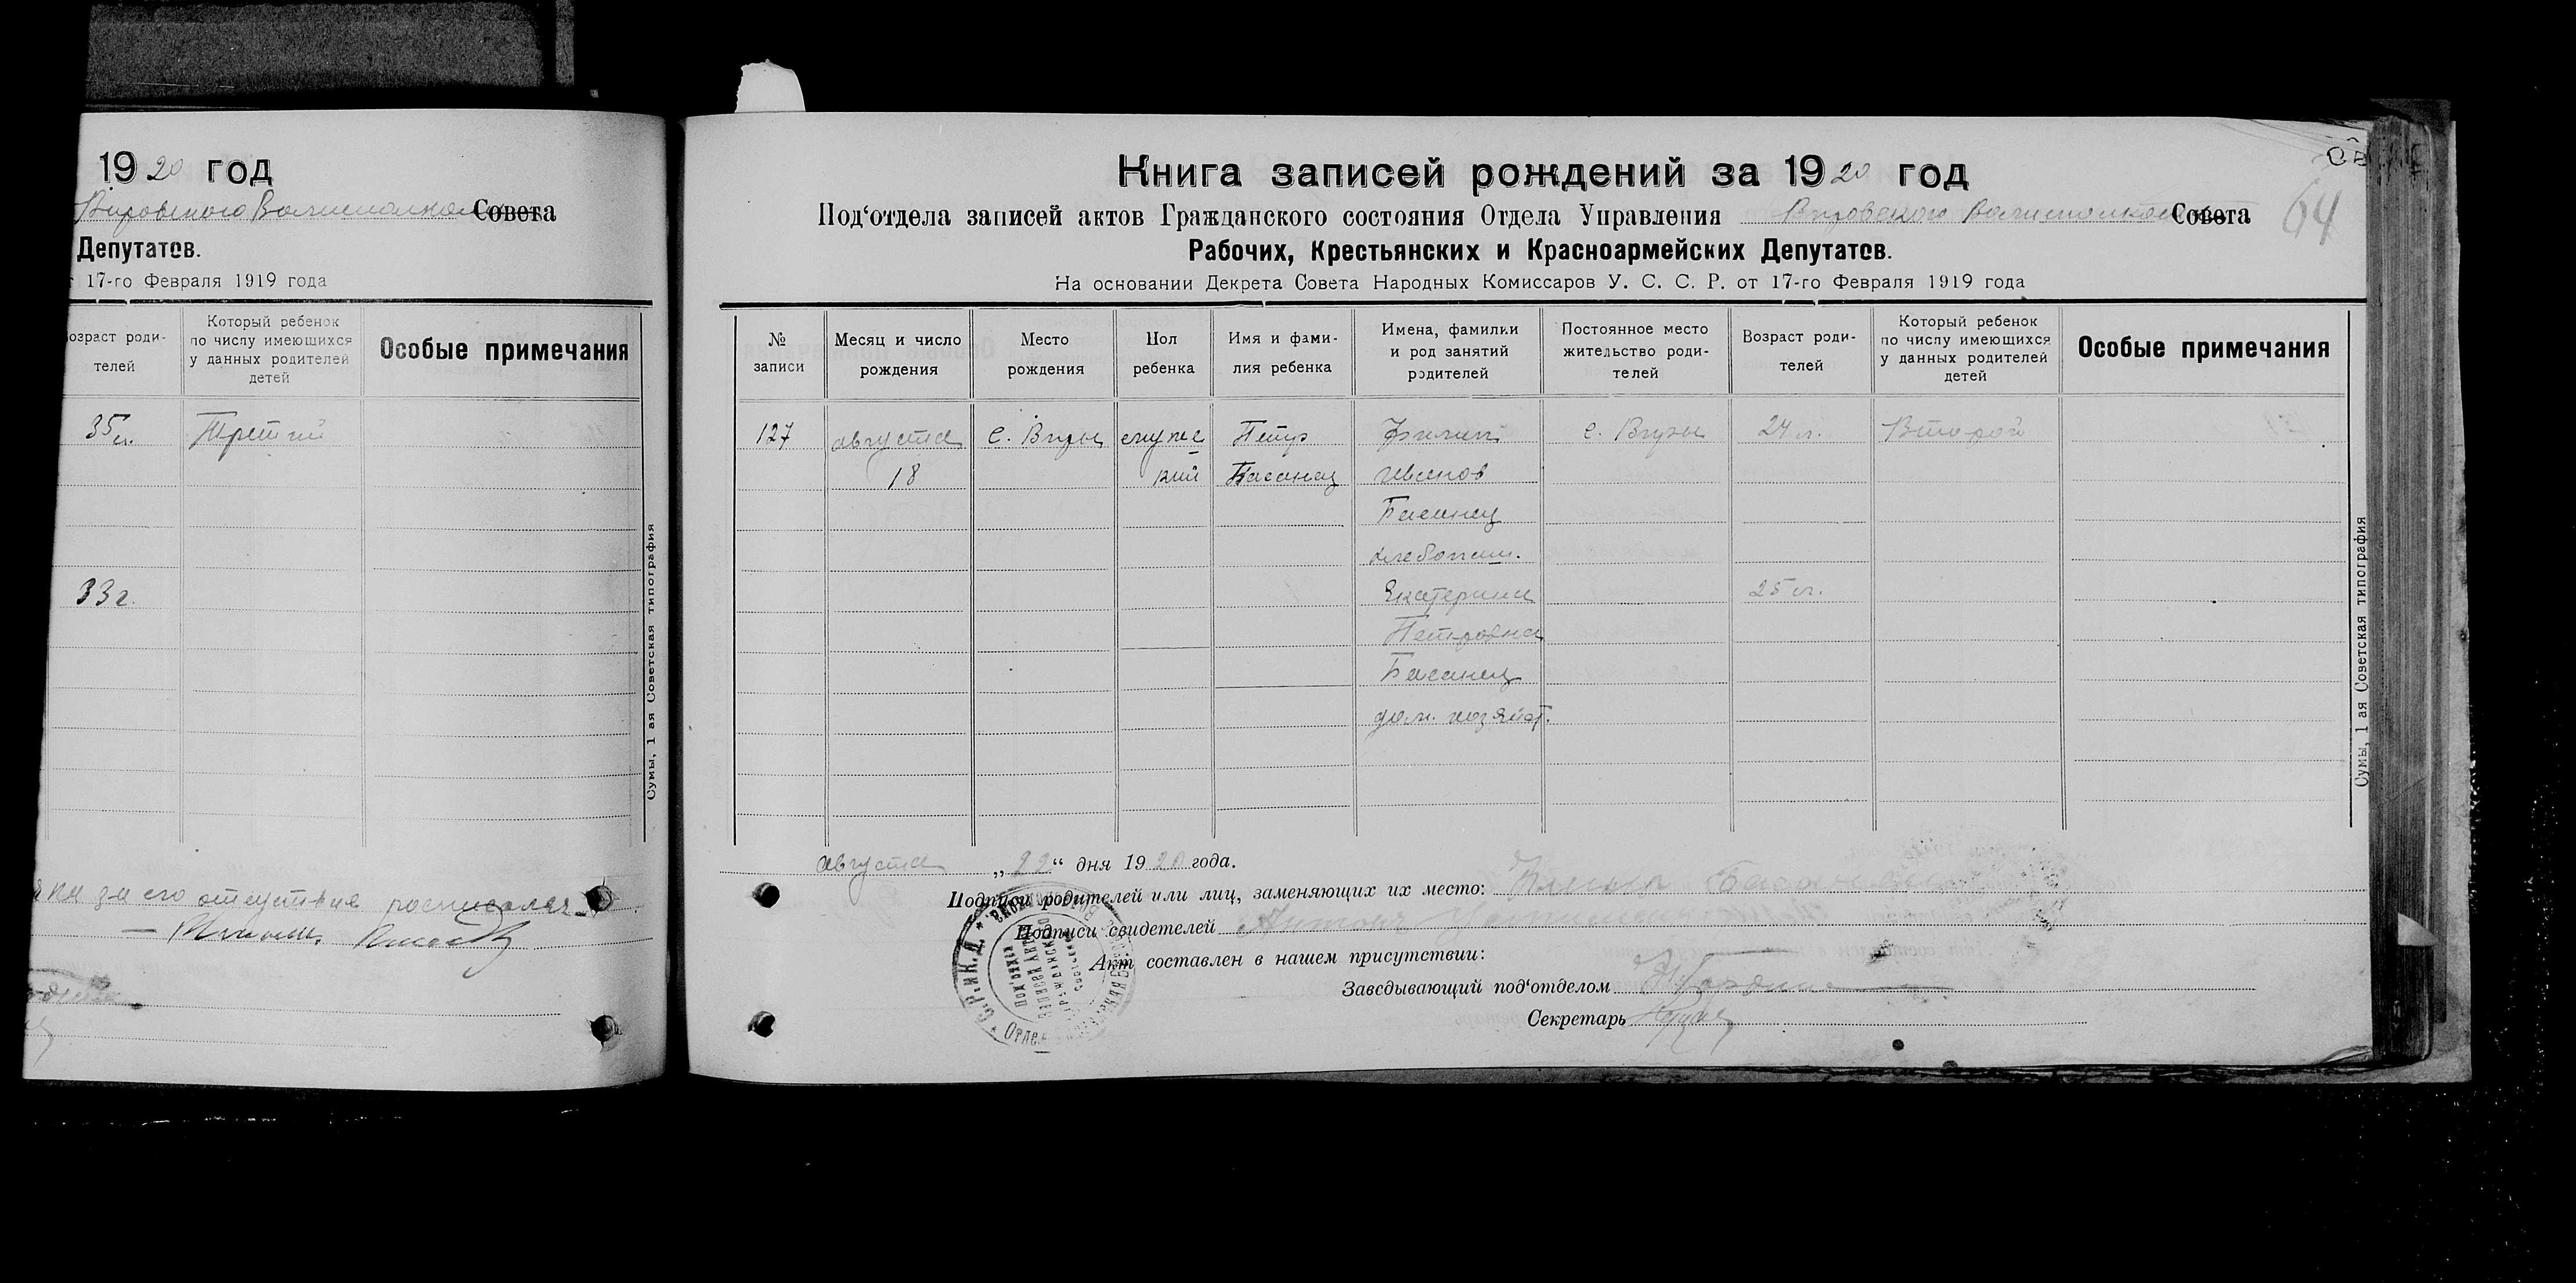 1920 год
Вировского Волисполкома Совета
Депутатов.
17-го Февраля 1919 года
озраст роди-
телей
Который ребенок
по числу имеющихся
у данных родителей
детей
Особые примечания
35 л.
Третий
33 г.
за его отсутствие росписалася
Сумы, 1 ая Советская типография
Книга записей рождений за 1920 год
64
Под‘отдела записей актов Гражданского состояния Отдела Управления Вировского Волисполкома Совета
Рабочих, Крестьянских и Красноармейских Депутатов.
На основании Декрета Совета Народных Комиссаров У. С. С. Р. от 17-го Февраля 1919 года
№
записи
Месяц и число
рождения
Место
рождения
Пол
ребенка
Имя и фами-
лия ребенка
Имена, фамилии
и род занятий
родителей
Постоянное место
жительство роди-
телей
Возраст роди-
телей
Который ребенок
по числу имеющихся
у данных родителей
детей
Особые примечания
127 августа с. Виры мужс Петр Филип с. Виры 24 л. Второй
18 кий Басанец Иванов
Басанец
хлебопаш.
Екатерина 25 л.
Петровна
Басанец
дом. хозяйст.
августа „22“ дня 1920 года.
Подписи родителей или лиц, заменяющих их место:
Подписи свидетелей Антон
Акт составлен в нашем присутствии:
Заведывающий под‘отделом
Секретарь
Сумы, 1 ая Советская типография